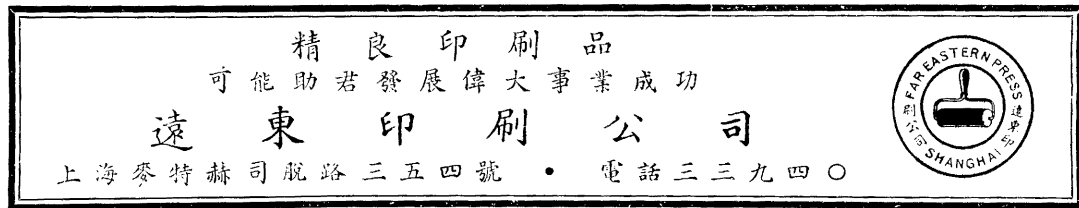 精良印刷品
可能助君發展偉大事業成功
遠東印刷公司
上海麥特赫司脫路三五四號・電話三三九四〇
FAR EASTERN PRESS
遠東印刷公司
SHANGHAI